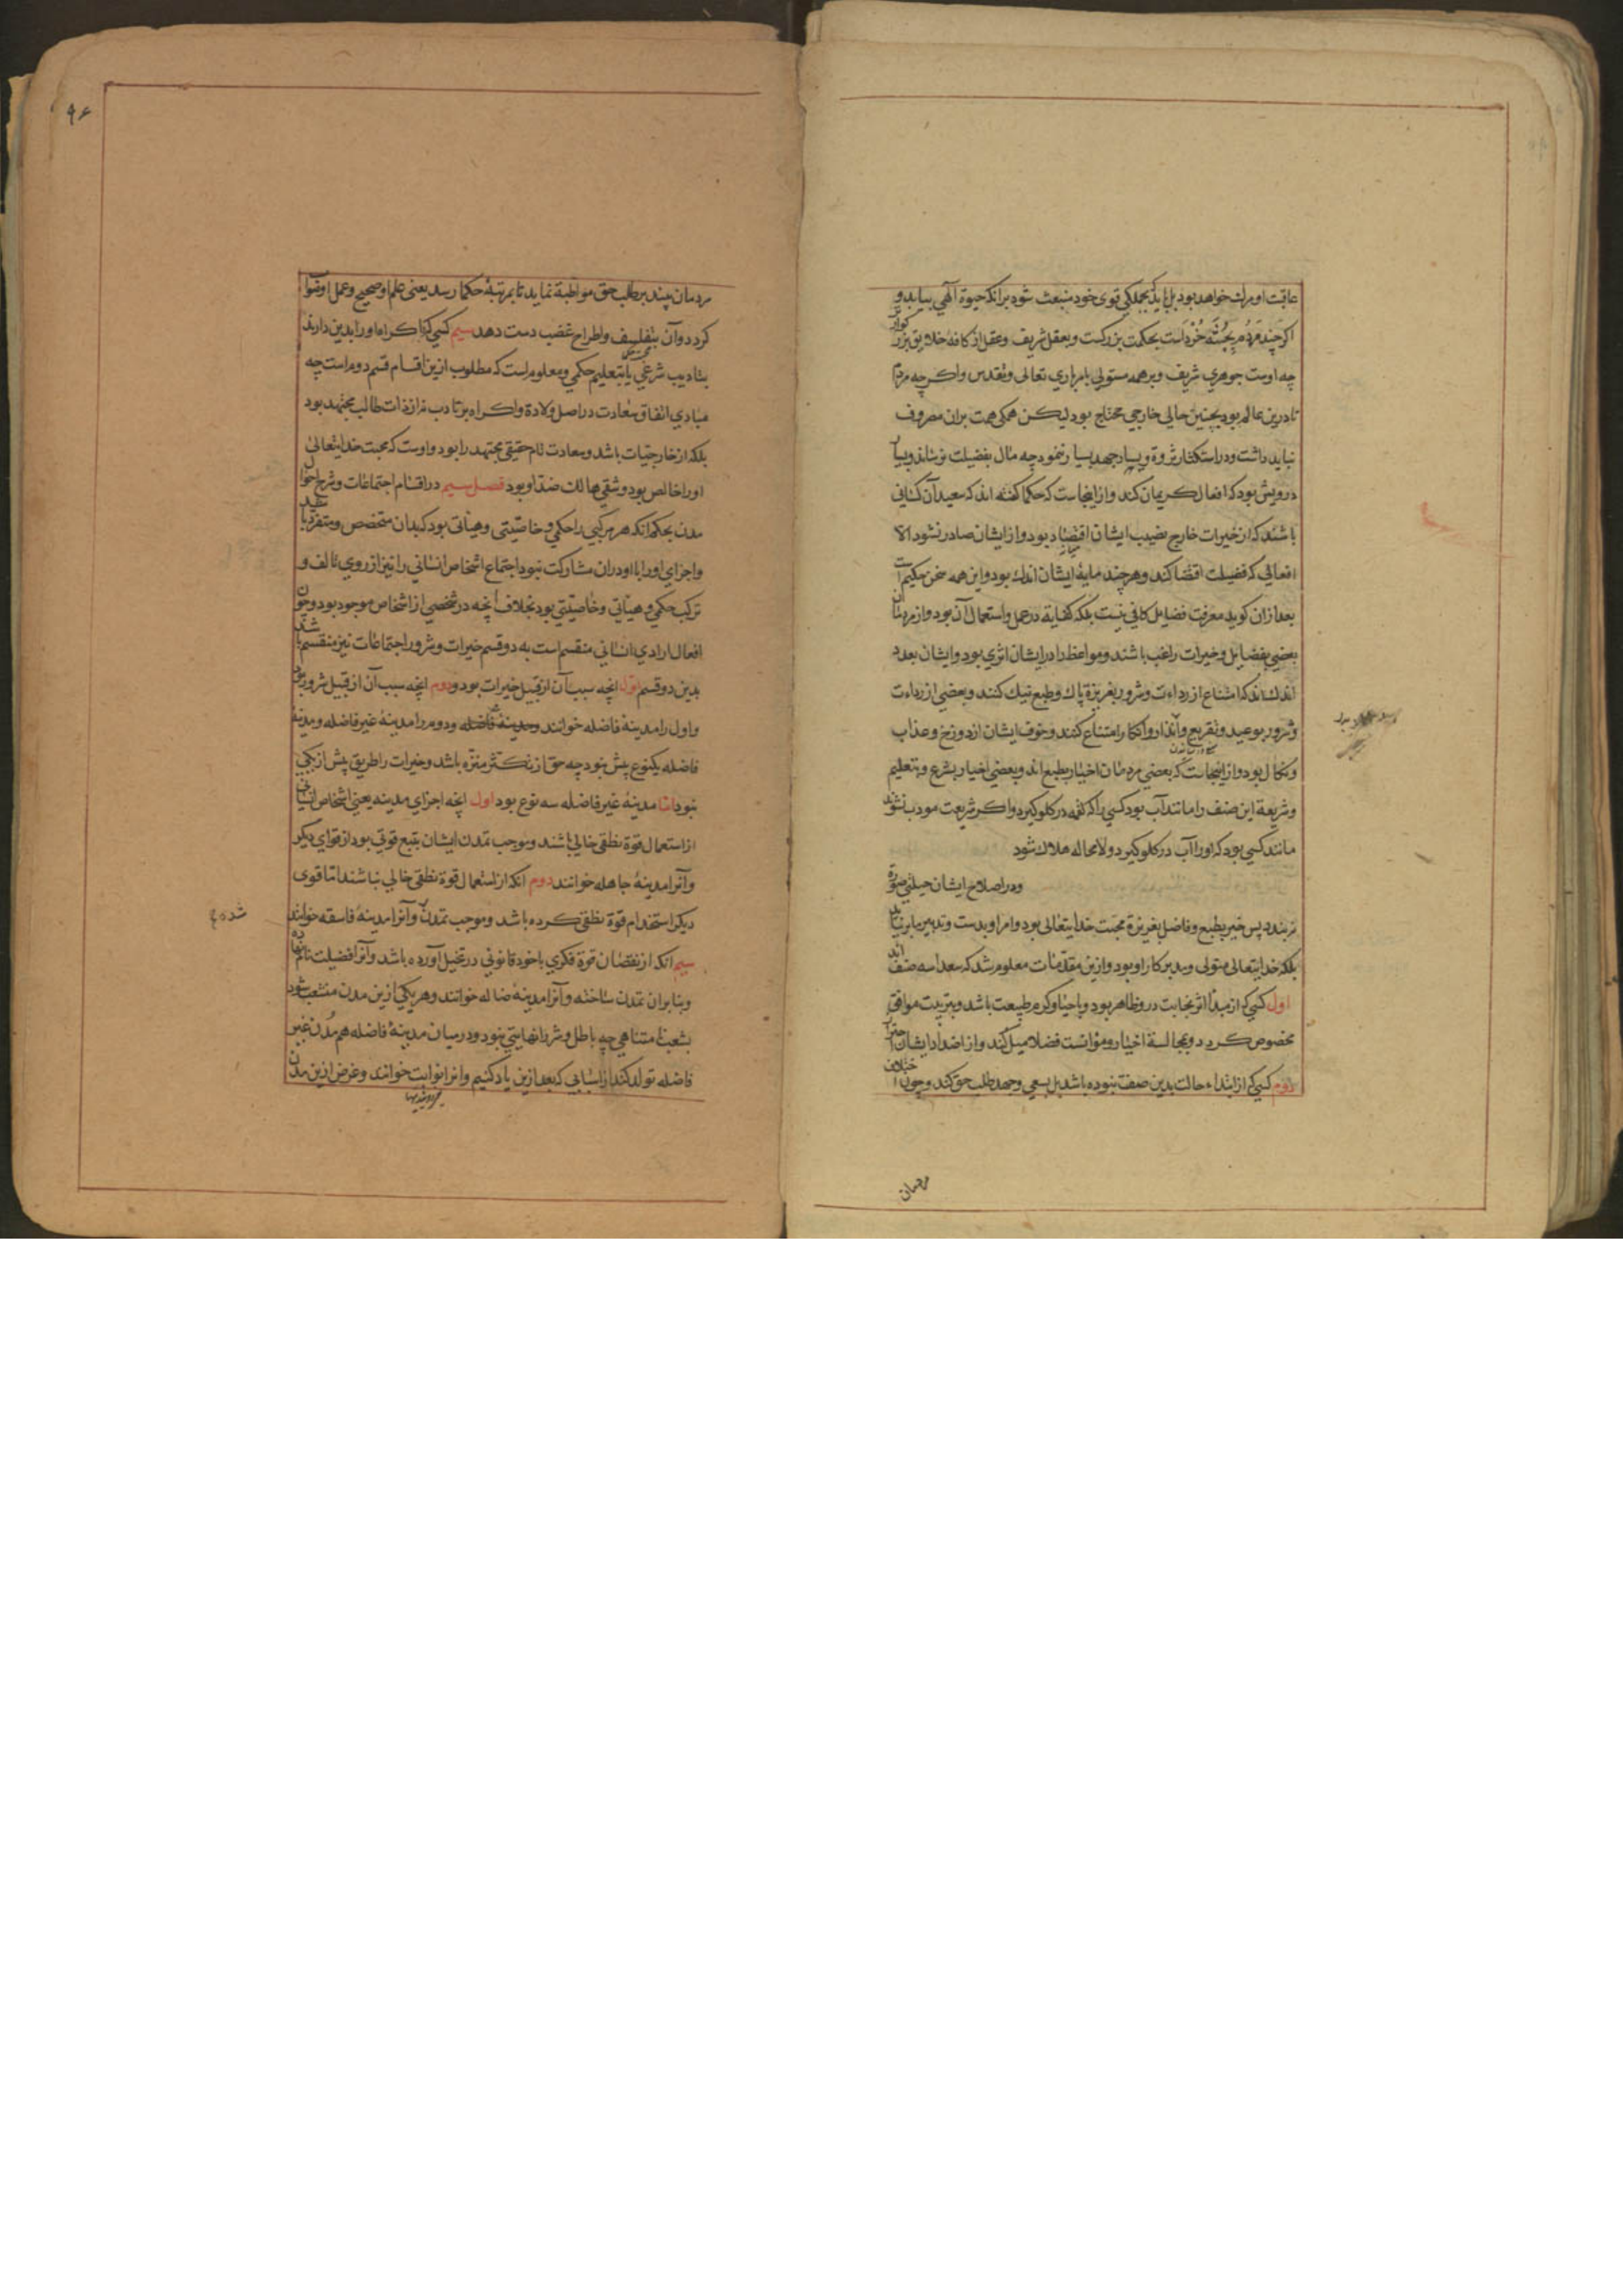 عاقبت او مرگ خواهد بود بل باید که بجملگی قوی خود منبعث شود برانکه حیوة الهی بیابد و
اگر چند مردم بجثه خرداست بحکمت بزرکست و بعقل شریف و عقل از کافه خلایق بزرگوارتر
چه اوست جوهری شریف و بر همه مستولی بامر باری تعالی و تقدس و اکرچه مردم
تا درین عالم بود بچنین حالی خارجی محتاج بود لیکن همکی همت بران مصروف
نباید داشت و در استکثار ثروة و یسار جهد بسیار ننمود چه مال بفضیلت نرساند و بسیار
درویش بود که افعال کریمان کند و از اینجاست که حکما کفته اند که سعید آن کسانی
باشند که از خیرات خارج نصیب ایشان اقتصاد بود و از ایشان صادر نشود الا
افعالی که فضیلت اقتضا کند و هرچند مایهٔ ایشان اندک بود و این همه سخن حکیم است
بعد ازان کوید معرفت فضایل کافی نیست بلکه کفایة در عمل و استعمال آن بود و از مردمان
بعضی بفضایل و خیرات راغب باشند و مواعظ را در ایشان اثری بود و ایشان بعدد
اندک اند که امتناع از رداءت و شرور بغریزة پاک و طبع نیک کنند و بعضی از رداءت
و شرور بوعید و تقریع و انذار و انکار امتناع کنند و خوف ایشان از دوزخ و عذاب
و نکال بود و از اینجاست که بعضی مردمان اخیار بطبع اند و بعضی اخیار بشرع و بتعلیم
و شریعة این صنف را مانند آب بود کسی را که لقمه در کلو کیرد و اکر شریعت مودب نشوند
مانند کسی بود که اورا آب در کلو کیرد و لامحاله هلاک شود
و در اصلاح ایشان حیلتی صورة
نبندد پس خیر بطبع و فاضل بغریزة محبت خدایتعالی بود و امر او بدست و تدبیر ما برنیاید
بلکه خدایتعالی متولی و مدبر کار او بود و ازین مقدمات معلوم شد که سعدا سه صنف اند
اول کسی که از مبدأ اثر نجابت درو ظاهر بود و باحیا و کرم طبیعت باشد و بتربیت موافق
مخصوص کردد و بمجالسة اخیار و مؤانست فضلا میل کند و از اضداد ایشان احتراز
دوم کسی که از ابتداء حالت بدین صفت نبوده باشد بل بسعی و جهد طلب حق کند و چون اختلاف
مردمان
۹۶
مردمان بیند بر طلب حق مواظبة نماید تا بمرتبهٔ حکما رسد یعنی علم او صحیح و عمل او صواب
کردد و آن بتفلسف و اطراح عصبیت دست دهد سیم کسی که باکراه اورا بدین دارند
بتادیب شرعی یا بتعلیم حکمی و معلوم است که مطلوب ازین اقسام قسم دوم است چه
مبادی اتفاق سعادت در اصل ولادة و اکراه بر تادب نه از ذات طالب مجتهد بود
بلکه از خارجیات باشد و سعادت تام حقیقی مجتهد را بود و اوست که محبت خدایتعالی
اورا خالص بود و شقی هالک ضد او بود فصل سیم در اقسام اجتماعات و شرح احوال
مدن بحکم انکه هر مرکبی را حکمی و خاصیتی و هیأتی بود که بدان متخصص و متفرد باشد
و اجزای اورا با او دران مشارکت نبود اجتماع اشخاص انسانی را نیز از روی تالف و
ترکب حکمی و هیأتی و خاصیتی بود بخلاف انچه در شخصی از اشخاص موجود بود و چون
افعال ارادی انسانی منقسم است به دو قسم خیرات و شرور اجتماعات نیز منقسم باشد
بدین دو قسم اول انچه سبب آن از قبیل خیرات بود و دوم انچه سبب آن از قبیل شرور بود
و اول را مدینهٔ فاضله خوانند و دوم را مدینهٔ غیر فاضله و مدینهٔ
فاضله یکنوع بیش نبود چه حق از تکثر منزه باشد و خیرات را طریق بیش از یکی
نبود اما مدینهٔ غیر فاضله سه نوع بود اول انچه اجزای مدینه یعنی اشخاص انسانی
از استعمال قوة نطقی خالی باشند و موجب تمدن ایشان تتبع قوتی بود از قوای دیکر
و آنرا مدینهٔ جاهله خوانند دوم انکه از استعمال قوة نطقی خالی نباشند اما قوی
دیکر استخدام قوة نطقی کرده باشد و موجب تمدن و آنرا مدینهٔ فاسقه خوانند
شده
سیم انکه از نقصان قوة فکری با خود قانونی در تخیل آورده باشد و آنرا فضیلت نام نهاده
و بنا بران تمدن ساخته و آنرا مدینهٔ ضاله خوانند و هر یکی ازین مدن منشعب شود
بشعب نا متناهی چه باطل و شر را نهایتی نبود و در میان مدینهٔ فاضله هم مدن غیر
فاضله تولد کند از اسبابی که بعد ازین یاد کنیم و انرا نوابت خوانند و غرض ازین مدن